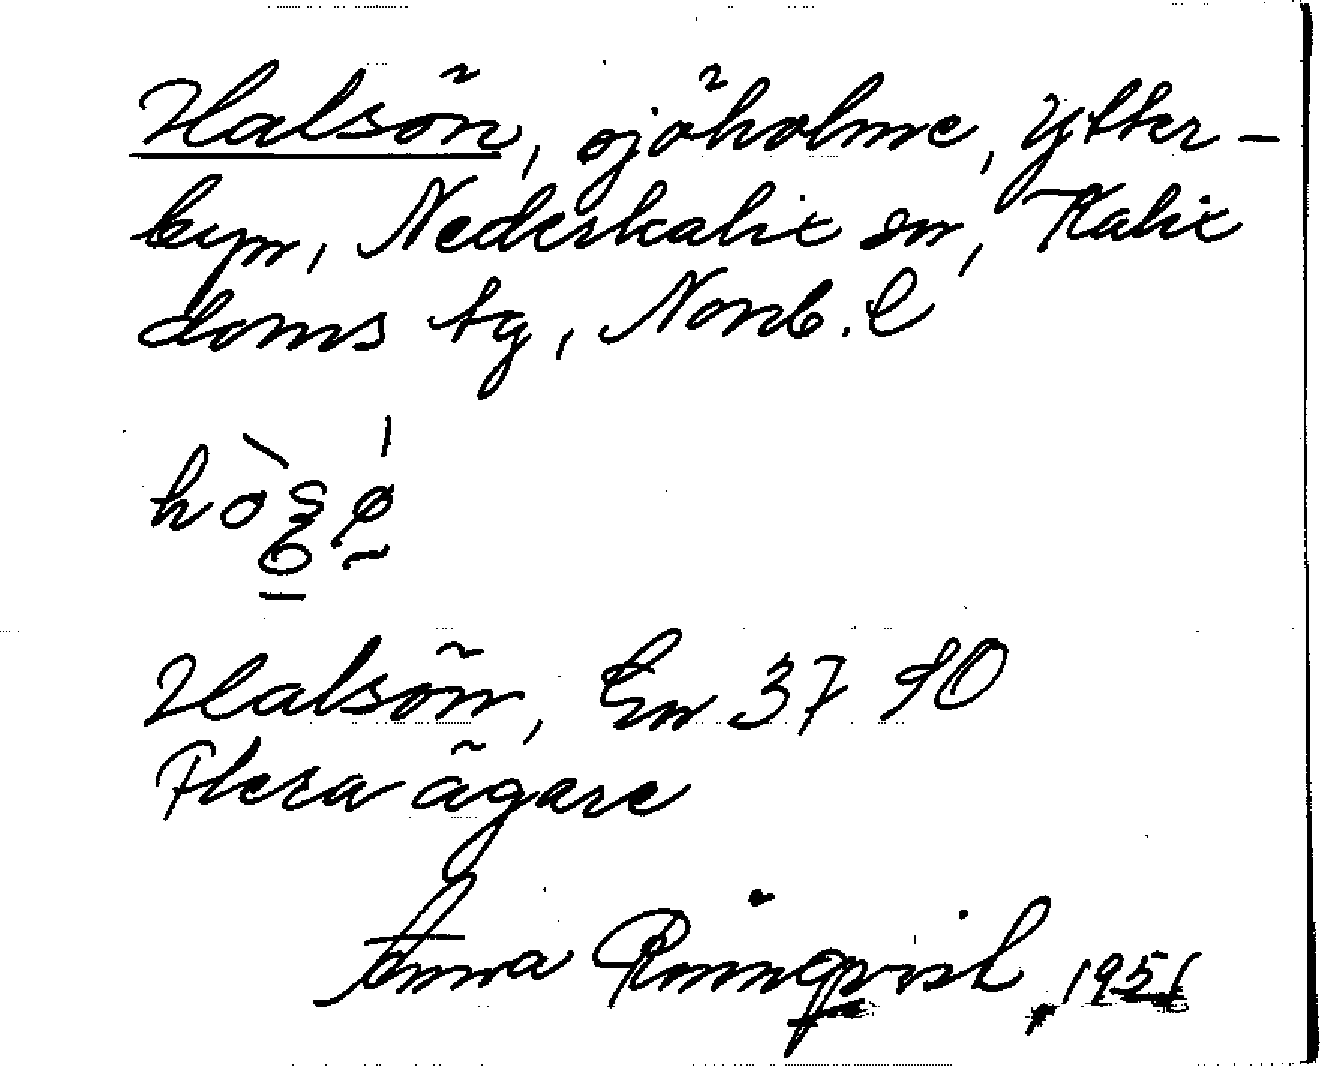 Halsön, sjöholme, Ytter-
byn, Nederkalix sn, Kalix
doms tg, Norrb. l
Halsön, En 37 90
Flera ägare
Anna Rönnqvist, 1951